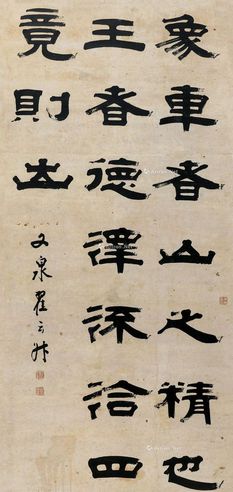 象車者山之精也
王者德澤流洽四
竟則出
文泉翟云升